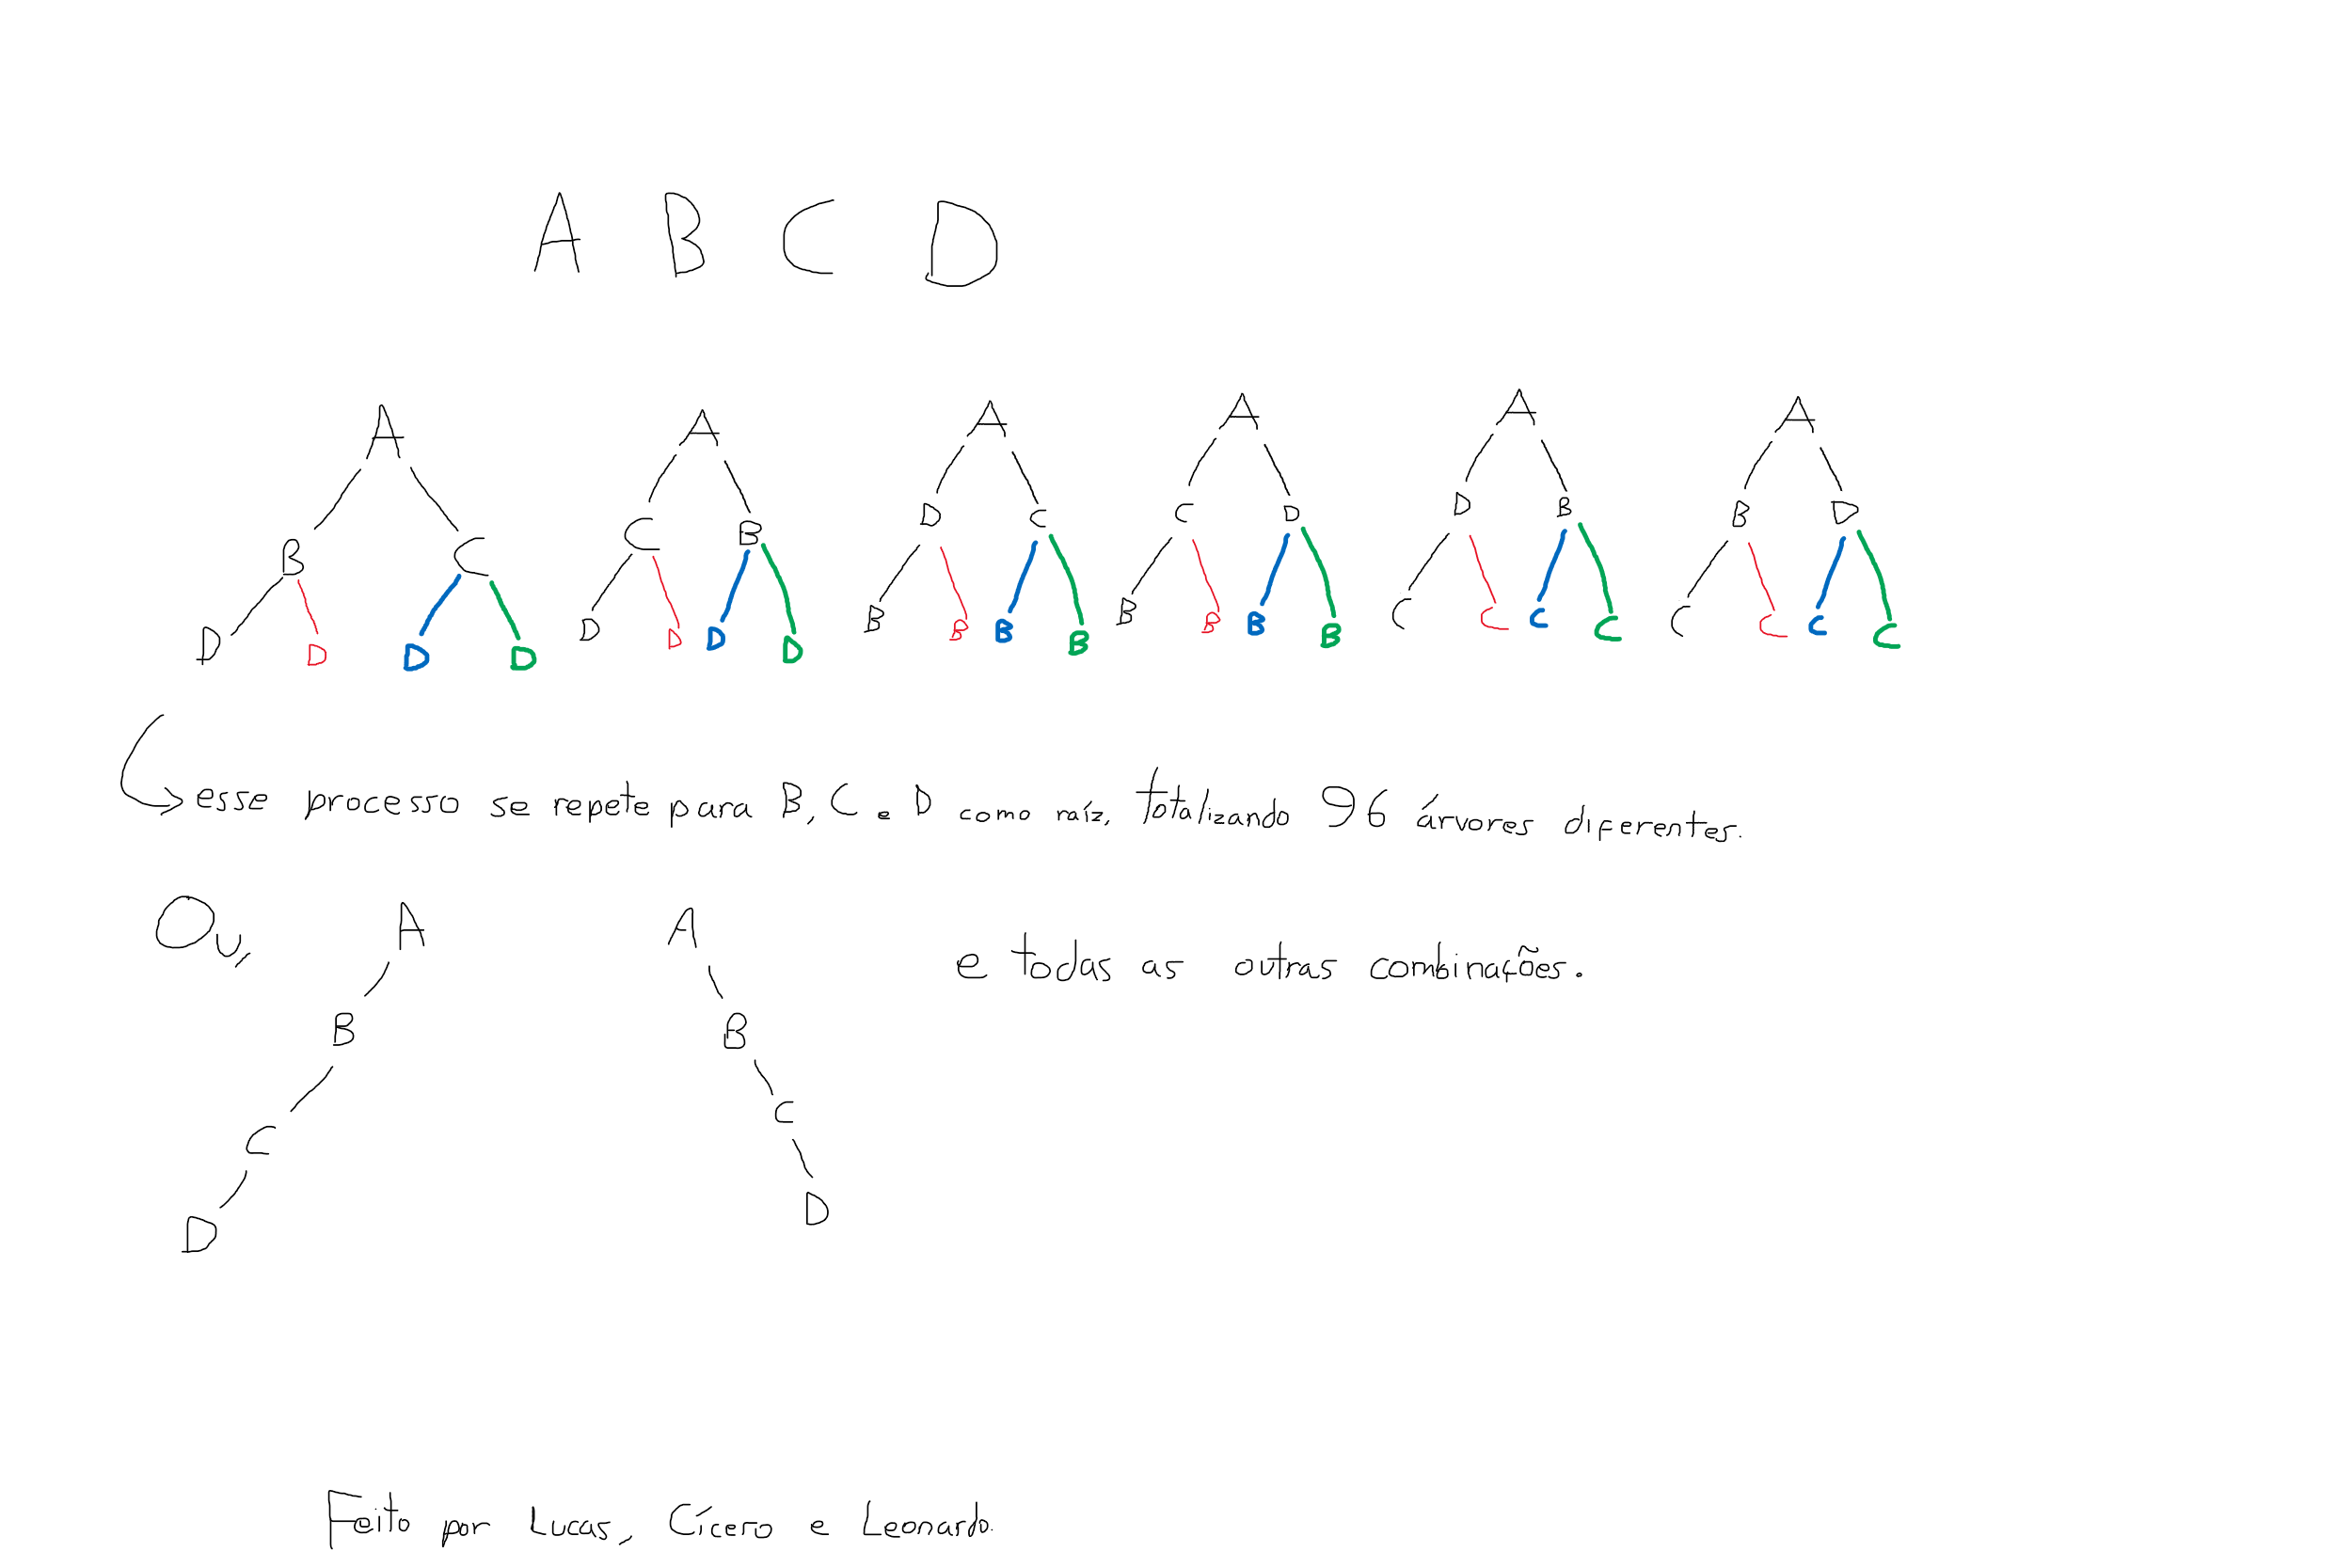 A B C D
A A A A A A
B C C B D C C D D B B D
D D D D D D D D B B B B B B B B C C C C C C C C
esse processo se repete para B, C e D como raíz, totalizando 96 árvores diferentes.
Ou,
A
B
C
D
A
B
C
D
e todas as outras combinações.
Feito por Lucas, Cícero e Leonardo.